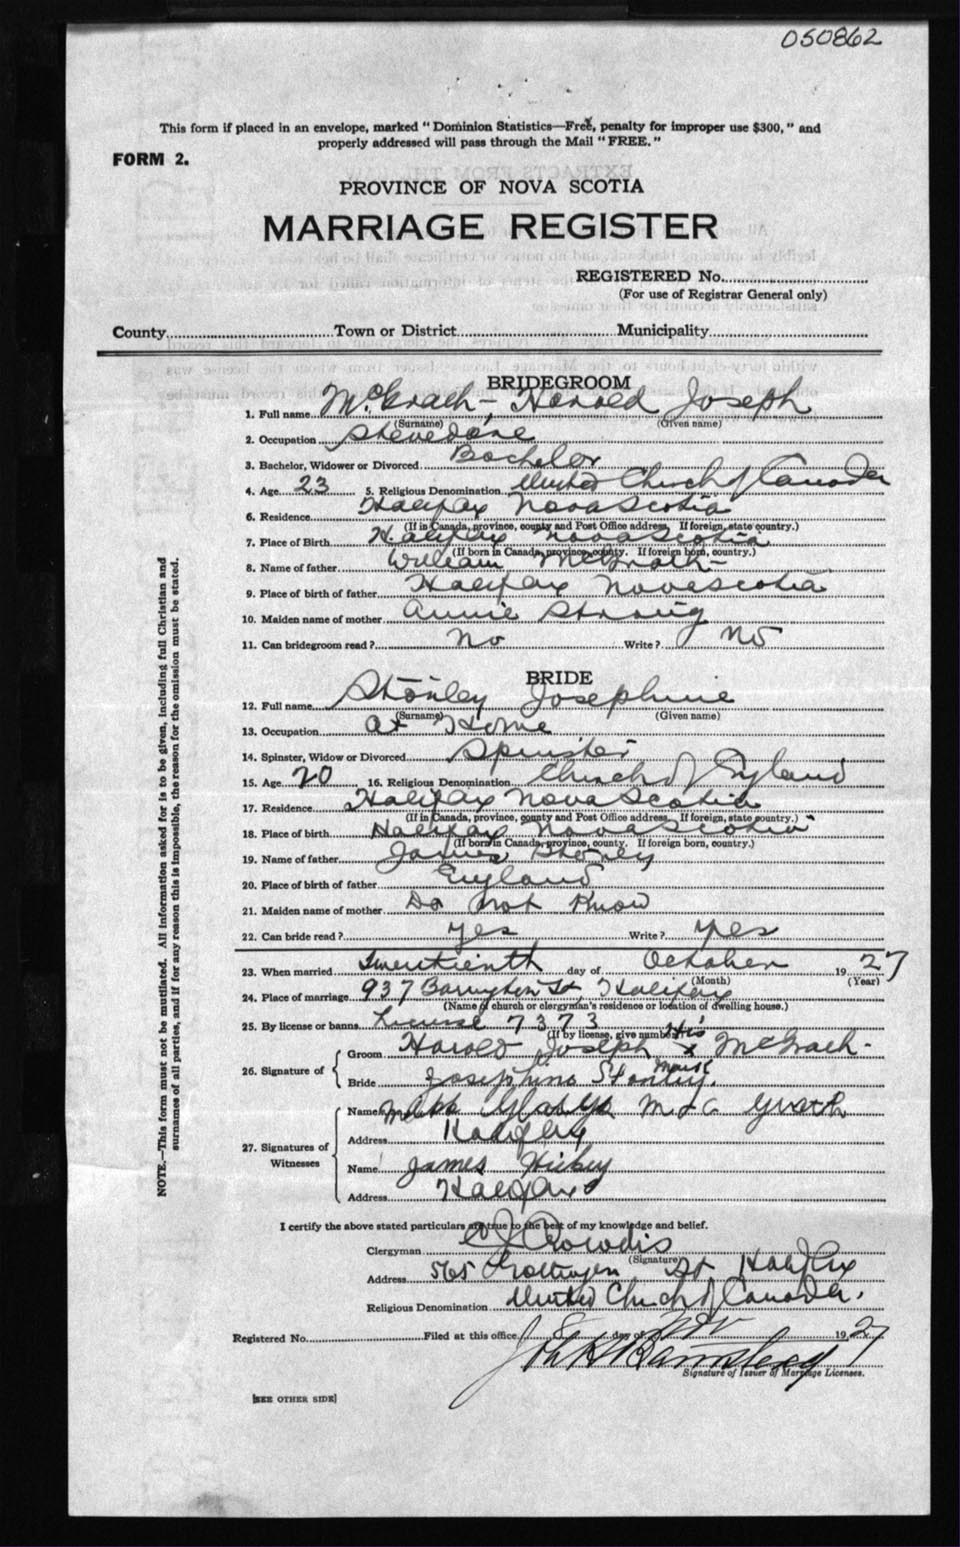 050862
This form if placed in an envelope, marked "Dominion Statistics—Free, penalty for improper use $300," and
properly addressed will pass through the Mail "FREE."
FORM 2.
PROVINCE OF NOVA SCOTIA
MARRIAGE REGISTER
REGISTERED No.
(For use of Registrar General only)
County Town or District Municipality
BRIDEGROOM
1. Full name McGrath, Harold Joseph
(Surname) (Given name)
2. Occupation Stevedore
3. Bachelor, Widower or Divorced Bachelor
4. Age 23 5. Religious Denomination United Church of Canada
6. Residence Halifax Nova Scotia
(If in Canada, province, county and Post Office address. If foreign, state country.)
7. Place of Birth Halifax Nova Scotia
(If born in Canada, province, county. If foreign born, country.)
8. Name of father William McGrath
9. Place of birth of father Halifax Nova Scotia
10. Maiden name of mother Annie Strong
11. Can bridegroom read? No Write? No
BRIDE
12. Full name Stonley Josephine
(Surname) (Given name)
13. Occupation At Home
14. Spinster, Widow or Divorced Spinster
15. Age 20 16. Religious Denomination Church of England
17. Residence Halifax Nova Scotia
(If in Canada, province, county and Post Office address. If foreign, state country.)
18. Place of birth Halifax Nova Scotia
(If born in Canada, province, county. If foreign born, country.)
19. Name of father James
20. Place of birth of father England
21. Maiden name of mother Do not Know
22. Can bride read? Yes Write? Yes
23. When married Twentienth day of October 1927
(Month) (Year)
24. Place of marriage 937 Barrington St, Halifax
(Name of church or clergyman's residence or location of dwelling house.)
25. By license or banns License 7373
(If by license, give number) His
26. Signature of Groom Harold Joseph X McGrath
mark
Bride Josephine Stonley.
27. Signatures of Witnesses
Name Gladys McGrath
Address Halifax
Name James Hickey
Address Halifax
I certify the above stated particulars are true to the best of my knowledge and belief.
Clergyman Crowdis
(Signature)
Address 565 Gottingen St Halifax
Religious Denomination United Church of Canada.
Registered No. Filed at this office 8 day of Nov 1927
John H Barnstead
Signature of Issuer of Marriage Licenses.
[SEE OTHER SIDE]
NOTE.—This form must not be mutilated. All information asked for is to be given, including full Christian and
surnames of all parties, and if for any reason this is impossible, the reason for the omission must be stated.